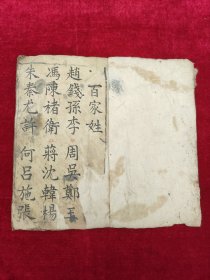 百家姓
趙錢孫李 周吳鄭王
馮陳褚衛 蔣沈韓楊
朱秦尤許 何呂施張